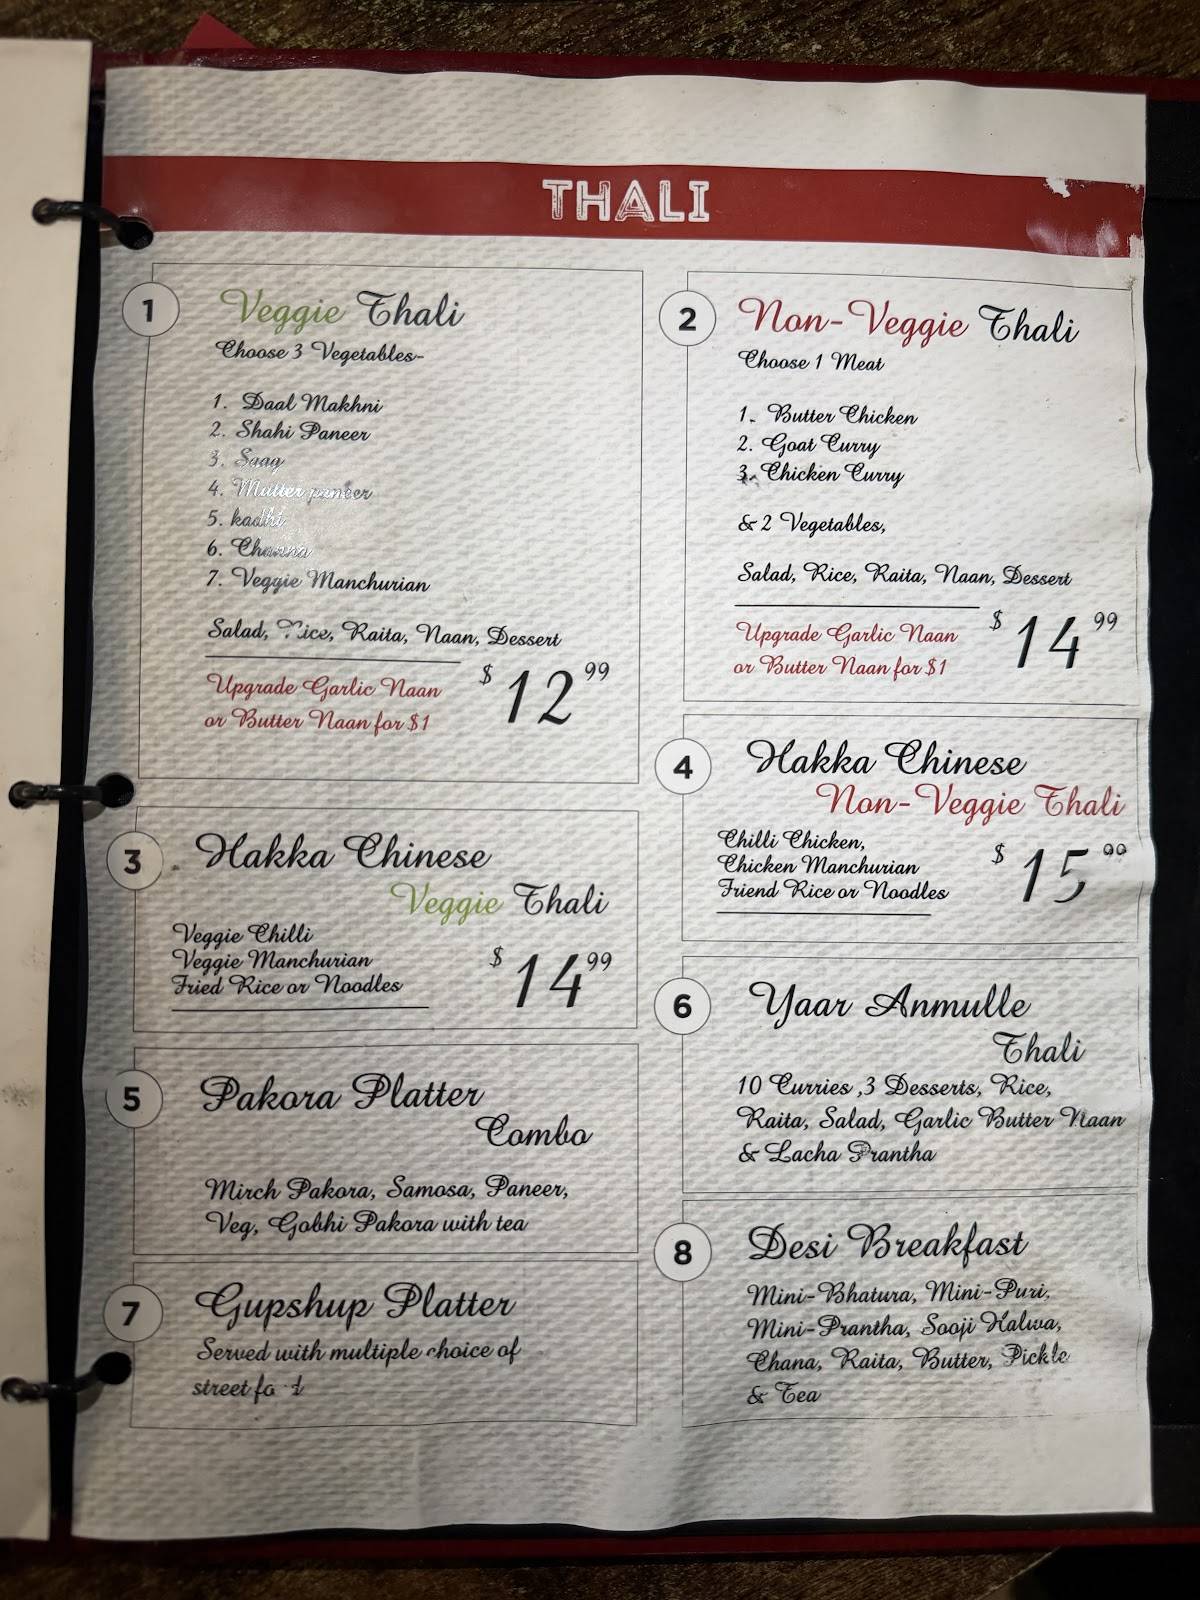 THALI
1
Veggie Thali
Choose 3 Vegetables-
1. Daal Makhni
2. Shahi Paneer
3. Saag
4. Mutter paneer
5. kadhi
6. Channa
7. Veggie Manchurian
Salad, Rice, Raita, Naan, Dessert
Upgrade Garlic Naan
or Butter Naan for $1
$12.99
2
Non-Veggie Thali
Choose 1 Meat
1. Butter Chicken
2. Goat Curry
3. Chicken Curry
& 2 Vegetables,
Salad, Rice, Raita, Naan, Dessert
Upgrade Garlic Naan
or Butter Naan for $1
$ 14 99
3
Hakka Chinese
Veggie Thali
Veggie Chilli
Veggie Manchurian
Fried Rice or Noodles
$ 14 99
4
Hakka Chinese
Non-Veggie Thali
Chilli Chicken,
Chicken Manchurian
Friend Rice or Noodles
$ 15 99
5
Pakora Platter
Combo
Mirch Pakora, Samosa, Paneer,
Veg, Gobhi Pakora with tea
6
Yaar Anmulle
Thali
10 Curries ,3 Desserts, Rice,
Raita, Salad, Garlic Butter Naan
& Lacha Prantha
7
Gupshup Platter
Served with multiple choice of
street food
8
Desi Breakfast
Mini-Bhatura, Mini-Puri,
Mini-Prantha, Sooji Halwa,
Chana, Raita, Butter, Pickle
& Tea